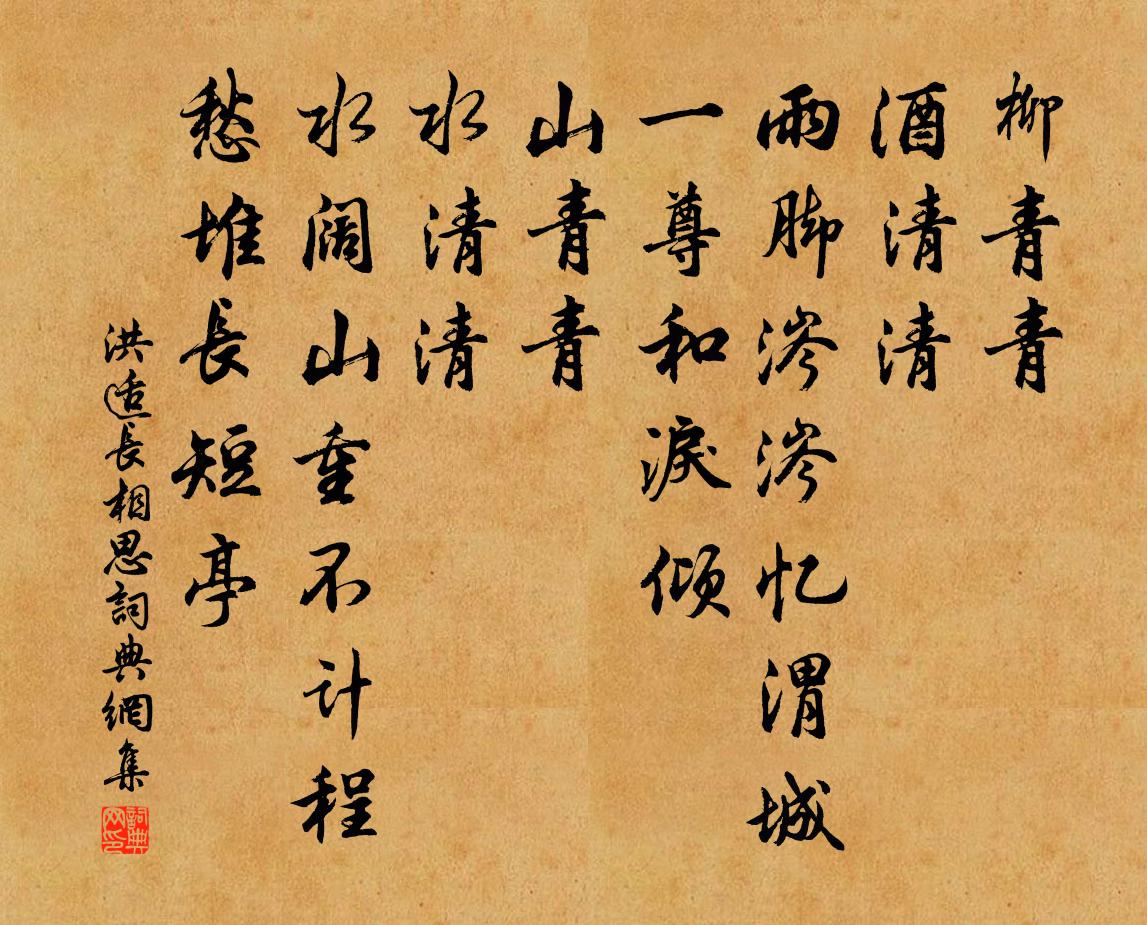 柳青青
酒清清
雨脚涔涔忆渭城
一尊和淚倾
山青青
水清清
水阔山重不计程
愁堆長短亭
洪适長相思詞典網集
詞典网印